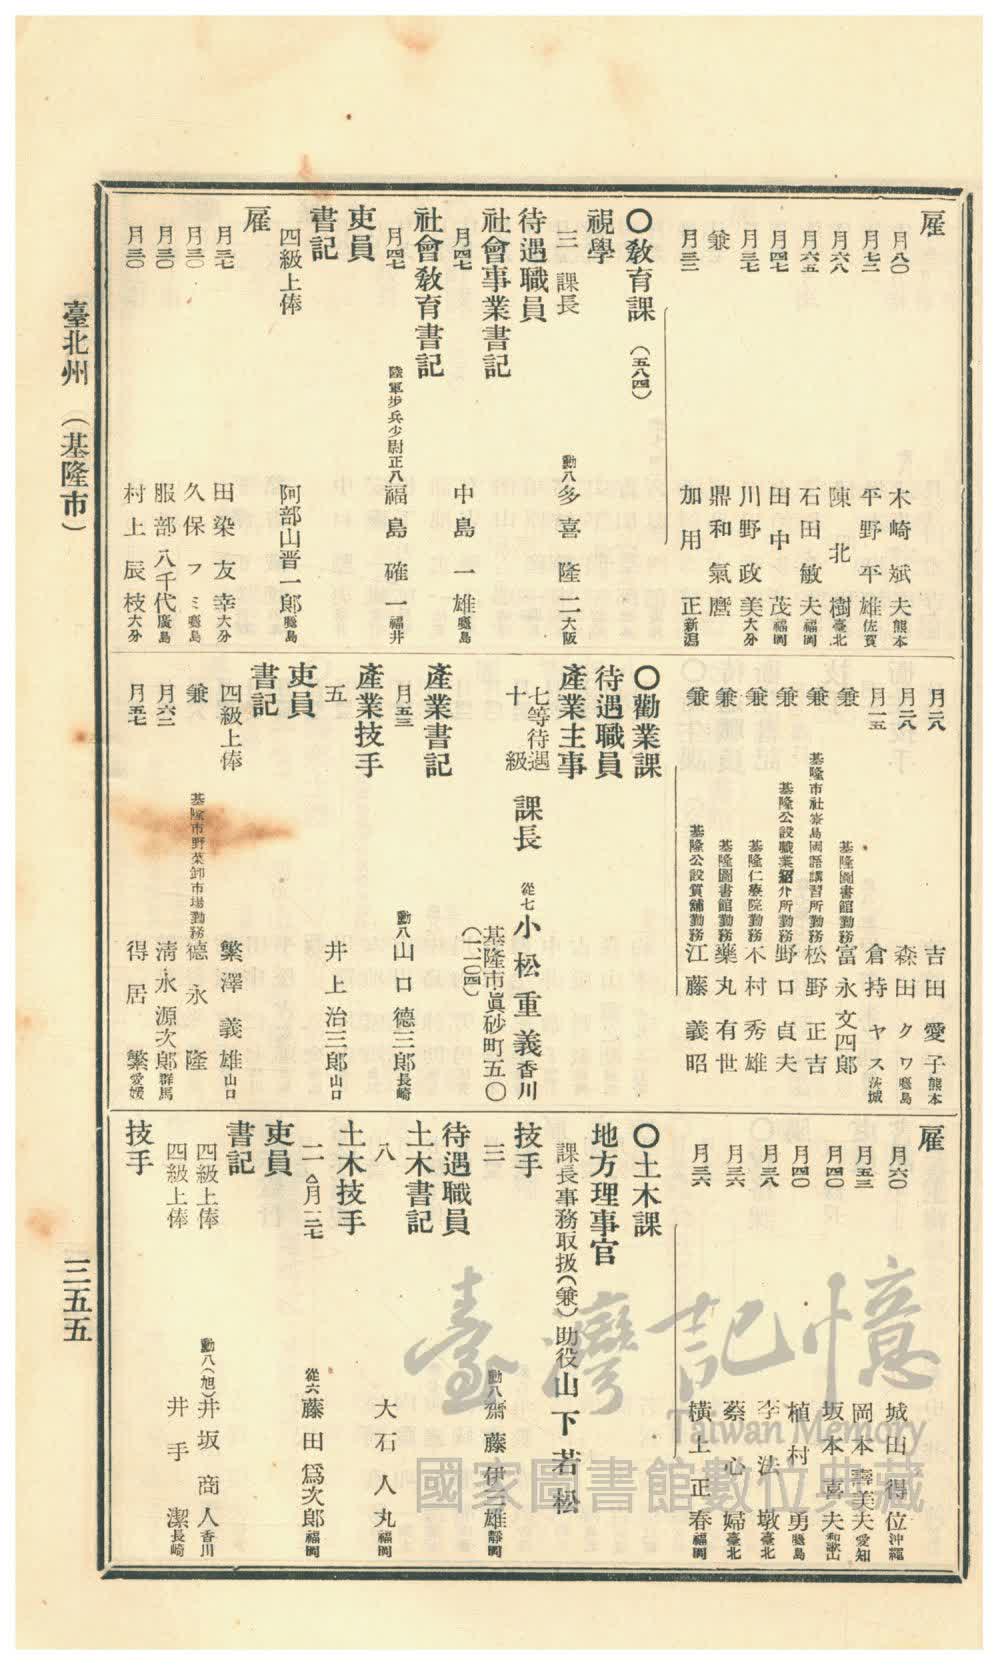 雇
月八〇 木崎斌夫 熊本
月七三 平野平雄 佐賀
月六八 陳北樹 臺北
月六五 石田敏夫 福岡
月四七 田中茂 福岡
月三七 川野政美 大分
兼 鼎和氣麿
月三三 加用正 新潟
〇教育課（五八四）
視學
三 課長 勳八 多喜隆二 大阪
待遇職員
社會事業書記
月四七 中島一雄 鹿兒島
社會教育書記
月四七 陸軍步兵少尉正八 福島確一 福井
吏員
書記
四級上俸 阿部山晋一郎 鹿兒島
雇
月三七 田染友幸 大分
月三〇 久保フミ 鹿兒島
月三〇 服部八千代 廣島
月三〇 村上辰枝 大分
月二八 吉田愛子 熊本
月二八 森田クワ 鹿兒島
月一五 倉持ヤス 茨城
兼 基隆圖書館勤務 富永文四郎
兼 基隆市社寮島國語講習所勤務 松野正吉
兼 基隆公設職業紹介所勤務 野口貞夫
兼 基隆仁療院勤務 木村秀雄
兼 基隆圖書館勤務 藥丸有世
兼 基隆公設質舖勤務 江藤義昭
〇勸業課
待遇職員
產業主事
七等待遇
十級 課長 從七 小松重義 香川
基隆市眞砂町五〇
（一一〇四）
產業書記
月五三 勳八 山口德三郎 長崎
產業技手
五 井上治三郎 山口
吏員
書記
四級上俸 繁澤義雄 山口
兼 基隆市野菜卸市場勤務 德永隆
月六二 淸永源次郎 群馬
月五七 得居繁 愛媛
雇
月六〇 城山得位 沖繩
月五三 岡本壽美夫 愛知
月四〇 坂本喜夫 和歌山
月四〇 植村勇 鹿兒島
月三八 李法墩 臺北
月三六 蔡心婦 臺北
月三六 橫土正春 福岡
〇土木課
地方理事官
課長事務取扱（兼）助役 山下若松
技手
三 勳八 齋藤伊三雄 靜岡
待遇職員
土木書記
八 大石人丸 福岡
土木技手
二 △月三七 從六 藤田爲次郎 福岡
吏員
書記
四級上俸 勳八（旭） 井坂商人 香川
四級上俸 井手潔 長崎
技手
臺北州（基隆市）
三五五
臺灣記憶
Taiwan Memory
國家圖書館數位典藏